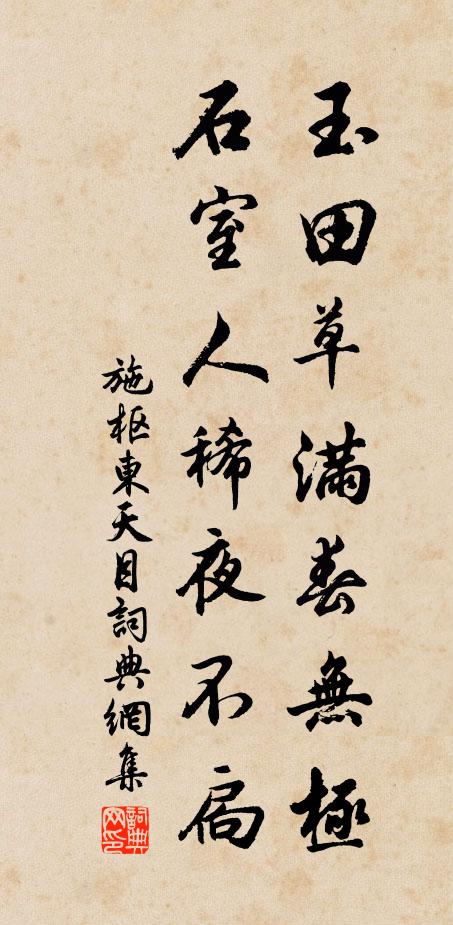 玉田草滿春無極
石室人稀夜不扃
施樞東天目詞典網集
詞典网印